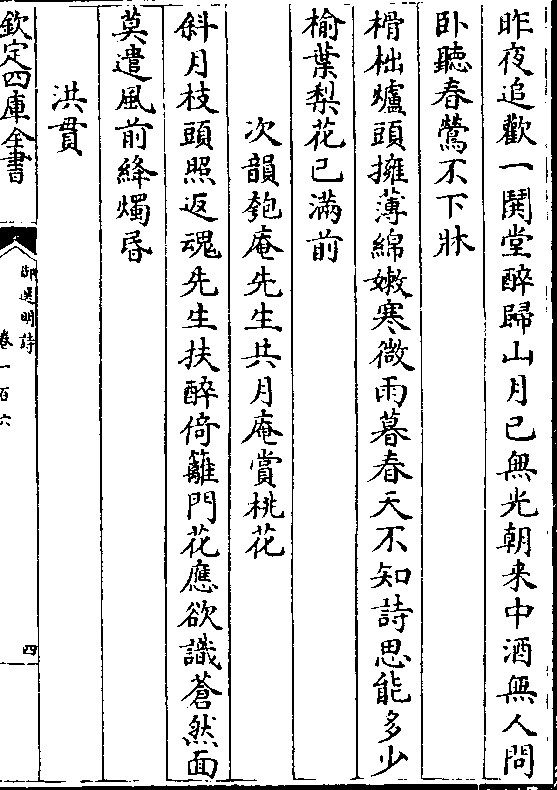 昨夜追歡一鬨堂醉歸山月已無光朝来中酒無人問
卧聽春鶯不下牀
榾柮爐頭擁薄綿嫩寒微雨暮春天不知詩思能多少
榆葉梨花已滿前
次韻匏庵先生共月庵賞桃花
斜月枝頭照返魂先生扶醉倚籬門花應欲識蒼然面
莫遣風前絳燭昏
洪貫
欽定四庫全書
御選明詩
卷一百六
四